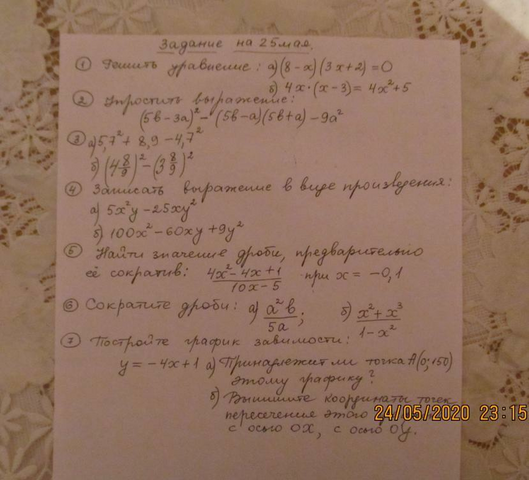 Задание на 25 мая.
① Решить уравнение: а) (8-x)(3x+2)=0
б) 4x·(x-3)=4x²+5
② Упростить выражение:
(5в-3а)²-(5в-а)(5в+а)-9а²
③ а) 5,7²+8,9-4,7²
б) (4 8/9)²-(3 8/9)²
④ Записать выражение в виде произведения:
а) 5x²y-25xy²
б) 100x²-60xy+9y²
⑤ Найти значение дроби, предварительно
её сократив: 4x²-4x+1/10x-5 при x=-0,1
⑥ Сократите дроби: а) а²в/5а; б) x²+x³/1-x²
⑦ Постройте график зависимости:
y=-4x+1 а) Принадлежит ли точка А(0;150)
этому графику?
б) Выпишите координаты точек
пересечения этого
с осью OX, с осью OY.
24/05/2020 23:15